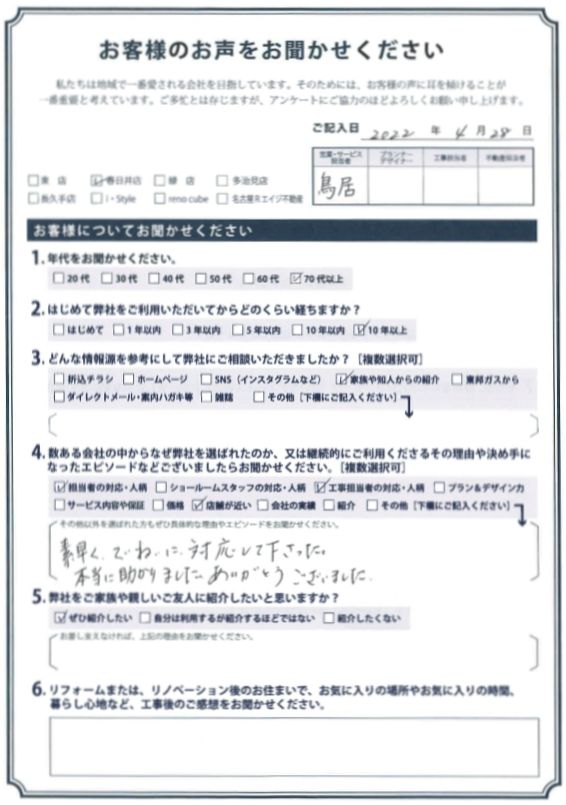 お客様のお声をお聞かせください
私たちは地域で一番愛される会社を目指しています。そのためには、お客様の声に耳を傾けることが
一番重要と考えています。ご多忙とは存じますが、アンケートにご協力のほどよろしくお願い申し上げます。
ご記入日 2022 年 4 月 28 日
営業・サービス担当者 プランナーデザイナー 工事担当者 不動産担当者
鳥居
□東 店 ☑春日井店 □緑 店 □多治見店
□長久手店 □I・Style □reno cube □名古屋Rエイジ不動産
お客様についてお聞かせください
1. 年代をお聞かせください。
□20代 □30代 □40代 □50代 □60代 ☑70代以上
2. はじめて弊社をご利用いただいてからどのくらい経ちますか？
□はじめて □1年以内 □3年以内 □5年以内 □10年以内 ☑10年以上
3. どんな情報源を参考にして弊社にご相談いただきましたか？［複数選択可］
□折込チラシ □ホームページ □SNS（インスタグラムなど） ☑家族や知人からの紹介 □東邦ガスから
□ダイレクトメール・案内ハガキ等 □雑誌 □その他［下欄にご記入ください］
4. 数ある会社の中からなぜ弊社を選ばれたのか、又は継続的にご利用くださるその理由や決め手に
なったエピソードなどございましたらお聞かせください。［複数選択可］
☑担当者の対応・人柄 □ショールームスタッフの対応・人柄 ☑工事担当者の対応・人柄 □プラン＆デザイン力
□サービス内容や保証 □価格 ☑店舗が近い □会社の実績 □紹介 □その他［下欄にご記入ください］
その他以外を選ばれた方もぜひ具体的な理由やエピソードをお聞かせください。
素早く、ていねいに対応して下さった。
本当に助かりました ありがとうございました.
5. 弊社をご家族や親しいご友人に紹介したいと思いますか？
☑ぜひ紹介したい □自分は利用するが紹介するほどではない □紹介したくない
お差し支えなければ、上記の理由をお聞かせください。
6. リフォームまたは、リノベーション後のお住まいで、お気に入りの場所やお気に入りの時間、
暮らし心地など、工事後のご感想をお聞かせください。